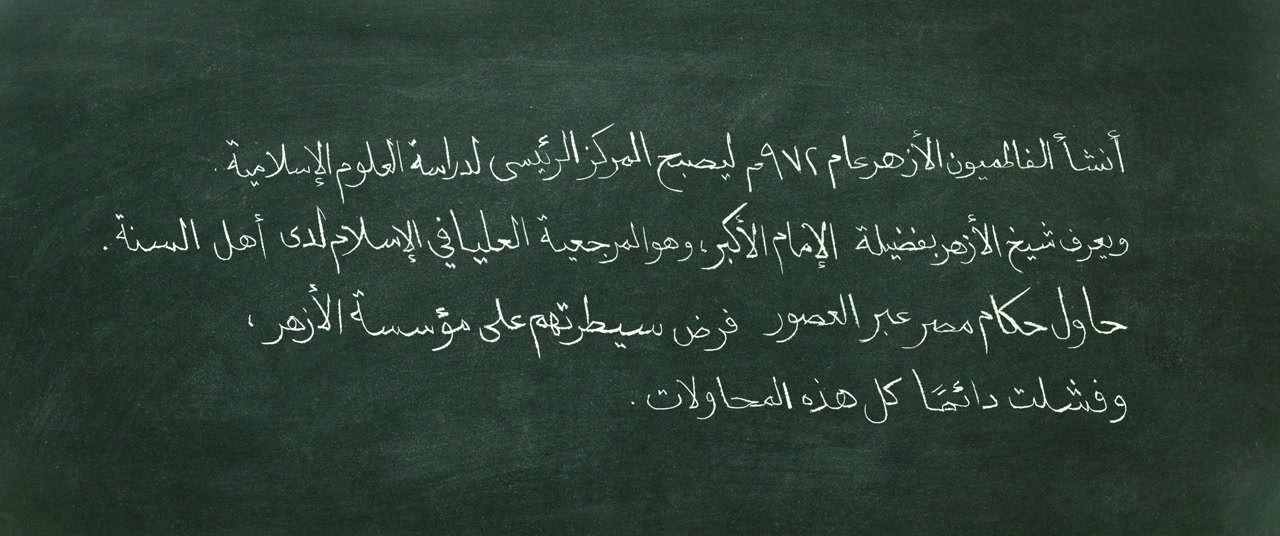 أنشأ الفاطميون الأزهر عام ٩٧٢م ليصبح المركز الرئيسى لدراسة العلوم الإسلامية .
ويعرف شيخ الأزهر بفضيلة الإمام الأكبر، وهو المرجعية العليا في الإسلام لدى أهل السنة .
حاول حكام مصر عبر العصور فرض سيطرتهم على مؤسسة الأزهر ،
وفشلت دائمًا كل هذه المحاولات .